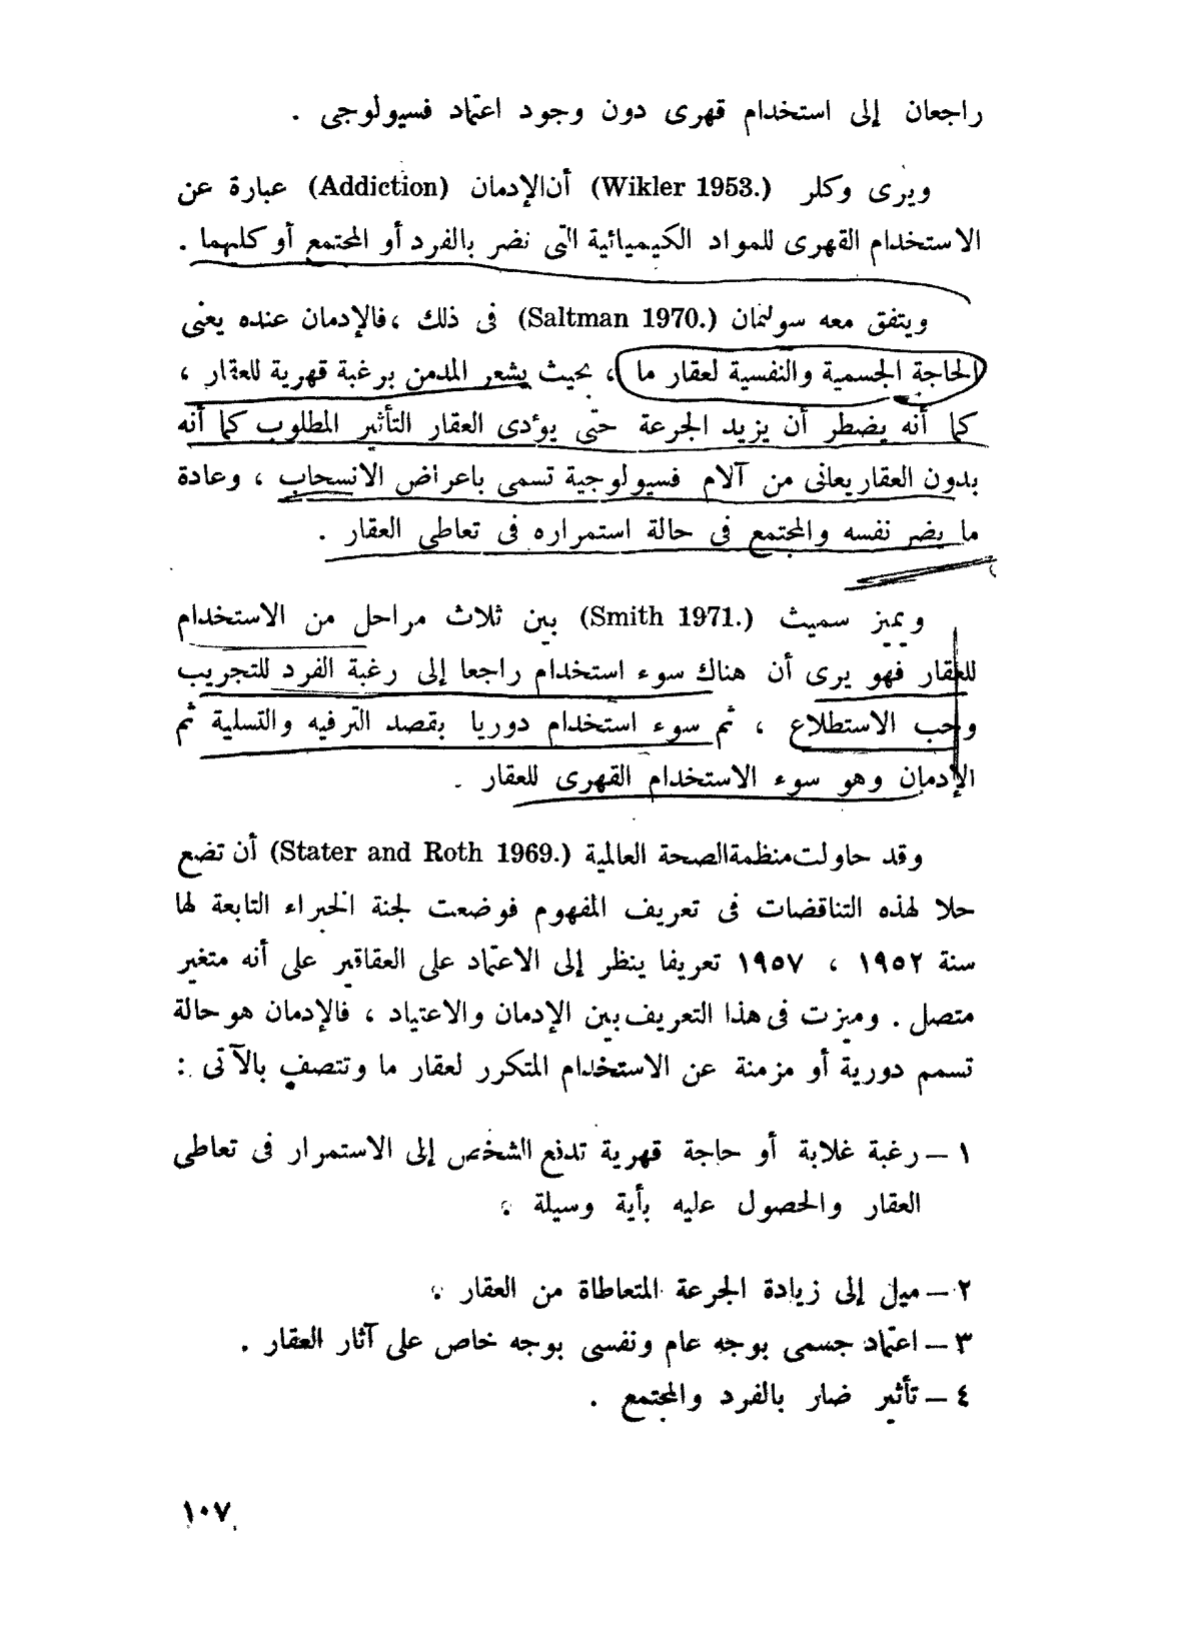 راجعان إلى استخدام قهرى دون وجود اعتماد فسيولوجى .
ويرى وكلر (Wikler 1953.) أن الإدمان (Addiction) عبارة عن
الاستخدام القهرى للمواد الكيميائية التى نضر بالفرد أو المجتمع أو كليهما .
ويتفق معه سولتمان (Saltman 1970.) فى ذلك ، فالإدمان عنده يعنى
الحاجة الجسمية والنفسية لعقار ما ، بحيث يشعر المدمن برغبة قهرية للعقار ،
كما أنه يضطر أن يزيد الجرعة حتى يؤدى العقار التأثير المطلوب كما أنه
بدون العقار يعانى من آلام فسيولوجية تسمى باعراض الانسحاب ، وعادة
ما يضر نفسه والمجتمع فى حالة استمراره فى تعاطى العقار .
ويميز سميث (Smith 1971.) بين ثلاث مراحل من الاستخدام
للعقار فهو يرى أن هناك سوء استخدام راجعا إلى رغبة الفرد للتجريب
وحب الاستطلاع ، ثم سوء استخدام دوريا بقصد الترفيه والتسلية ثم
الإدمان وهو سوء الاستخدام القهرى للعقار .
وقد حاولت منظمة الصحة العالمية (Stater and Roth 1969.) أن تضع
حلا لهذه التناقضات فى تعريف المفهوم فوضعت لجنة الخبراء التابعة لها
سنة ١٩٥٢ ، ١٩٥٧ تعريفا ينظر إلى الاعتماد على العقاقير على أنه متغير
متصل . وميزت فى هذا التعريف بين الإدمان والاعتياد ، فالإدمان هو حالة
تسمم دورية أو مزمنة عن الاستخدام المتكرر لعقار ما وتتصف بالآتى :
١ — رغبة غلابة أو حاجة قهرية تدفع الشخص إلى الاستمرار فى تعاطى
العقار والحصول عليه بأية وسيلة ،
٢ — ميل إلى زيادة الجرعة المتعاطاة من العقار ،
٣ — اعتماد جسمى بوجه عام ونفسى بوجه خاص على آثار العقار .
٤ — تأثير ضار بالفرد والمجتمع .
١٠٧